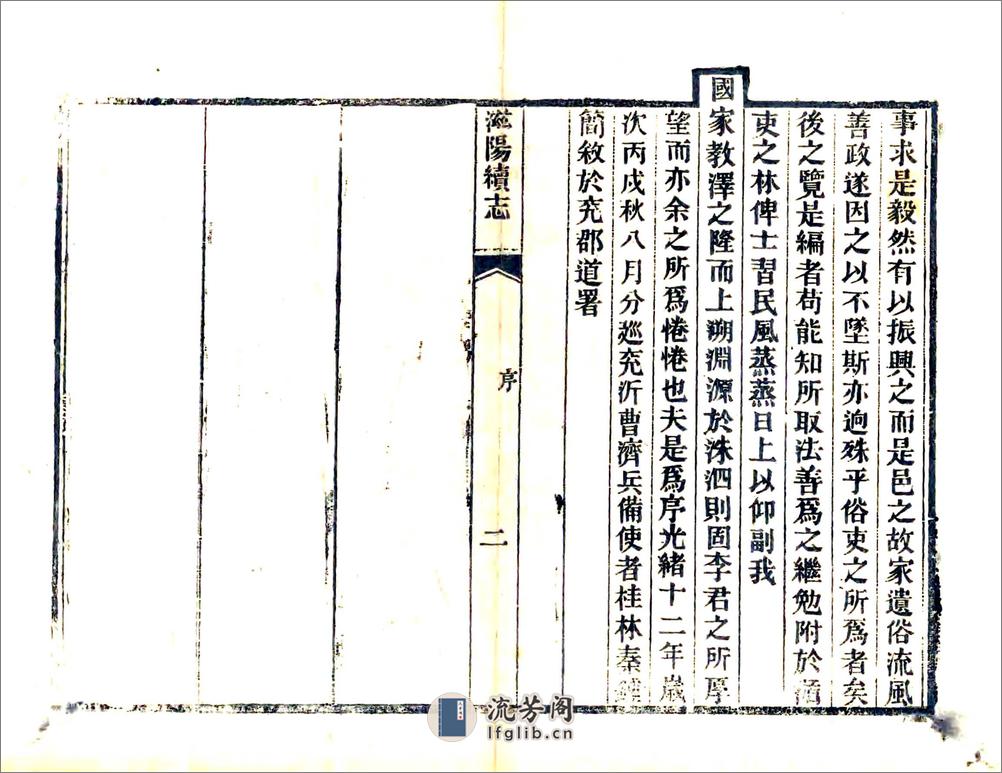 事求是毅然有以振興之而是邑之故家遺俗流風
善政遂因之以不墜斯亦逈殊乎俗吏之所爲者矣
後之覽是編者苟能知所取法善爲之繼勉附於循
吏之林俾士習民風蒸蒸日上以仰副我
國家教澤之隆而上溯淵源於洙泗則固李君之所厚
望而亦余之所爲惓惓也夫是爲序光緒十二年歲
次丙戌秋八月分廵兖沂曹濟兵備使者桂林秦
簡敘於兖郡道署
滋陽續志
序
二
流芳阁
lfglib.cn